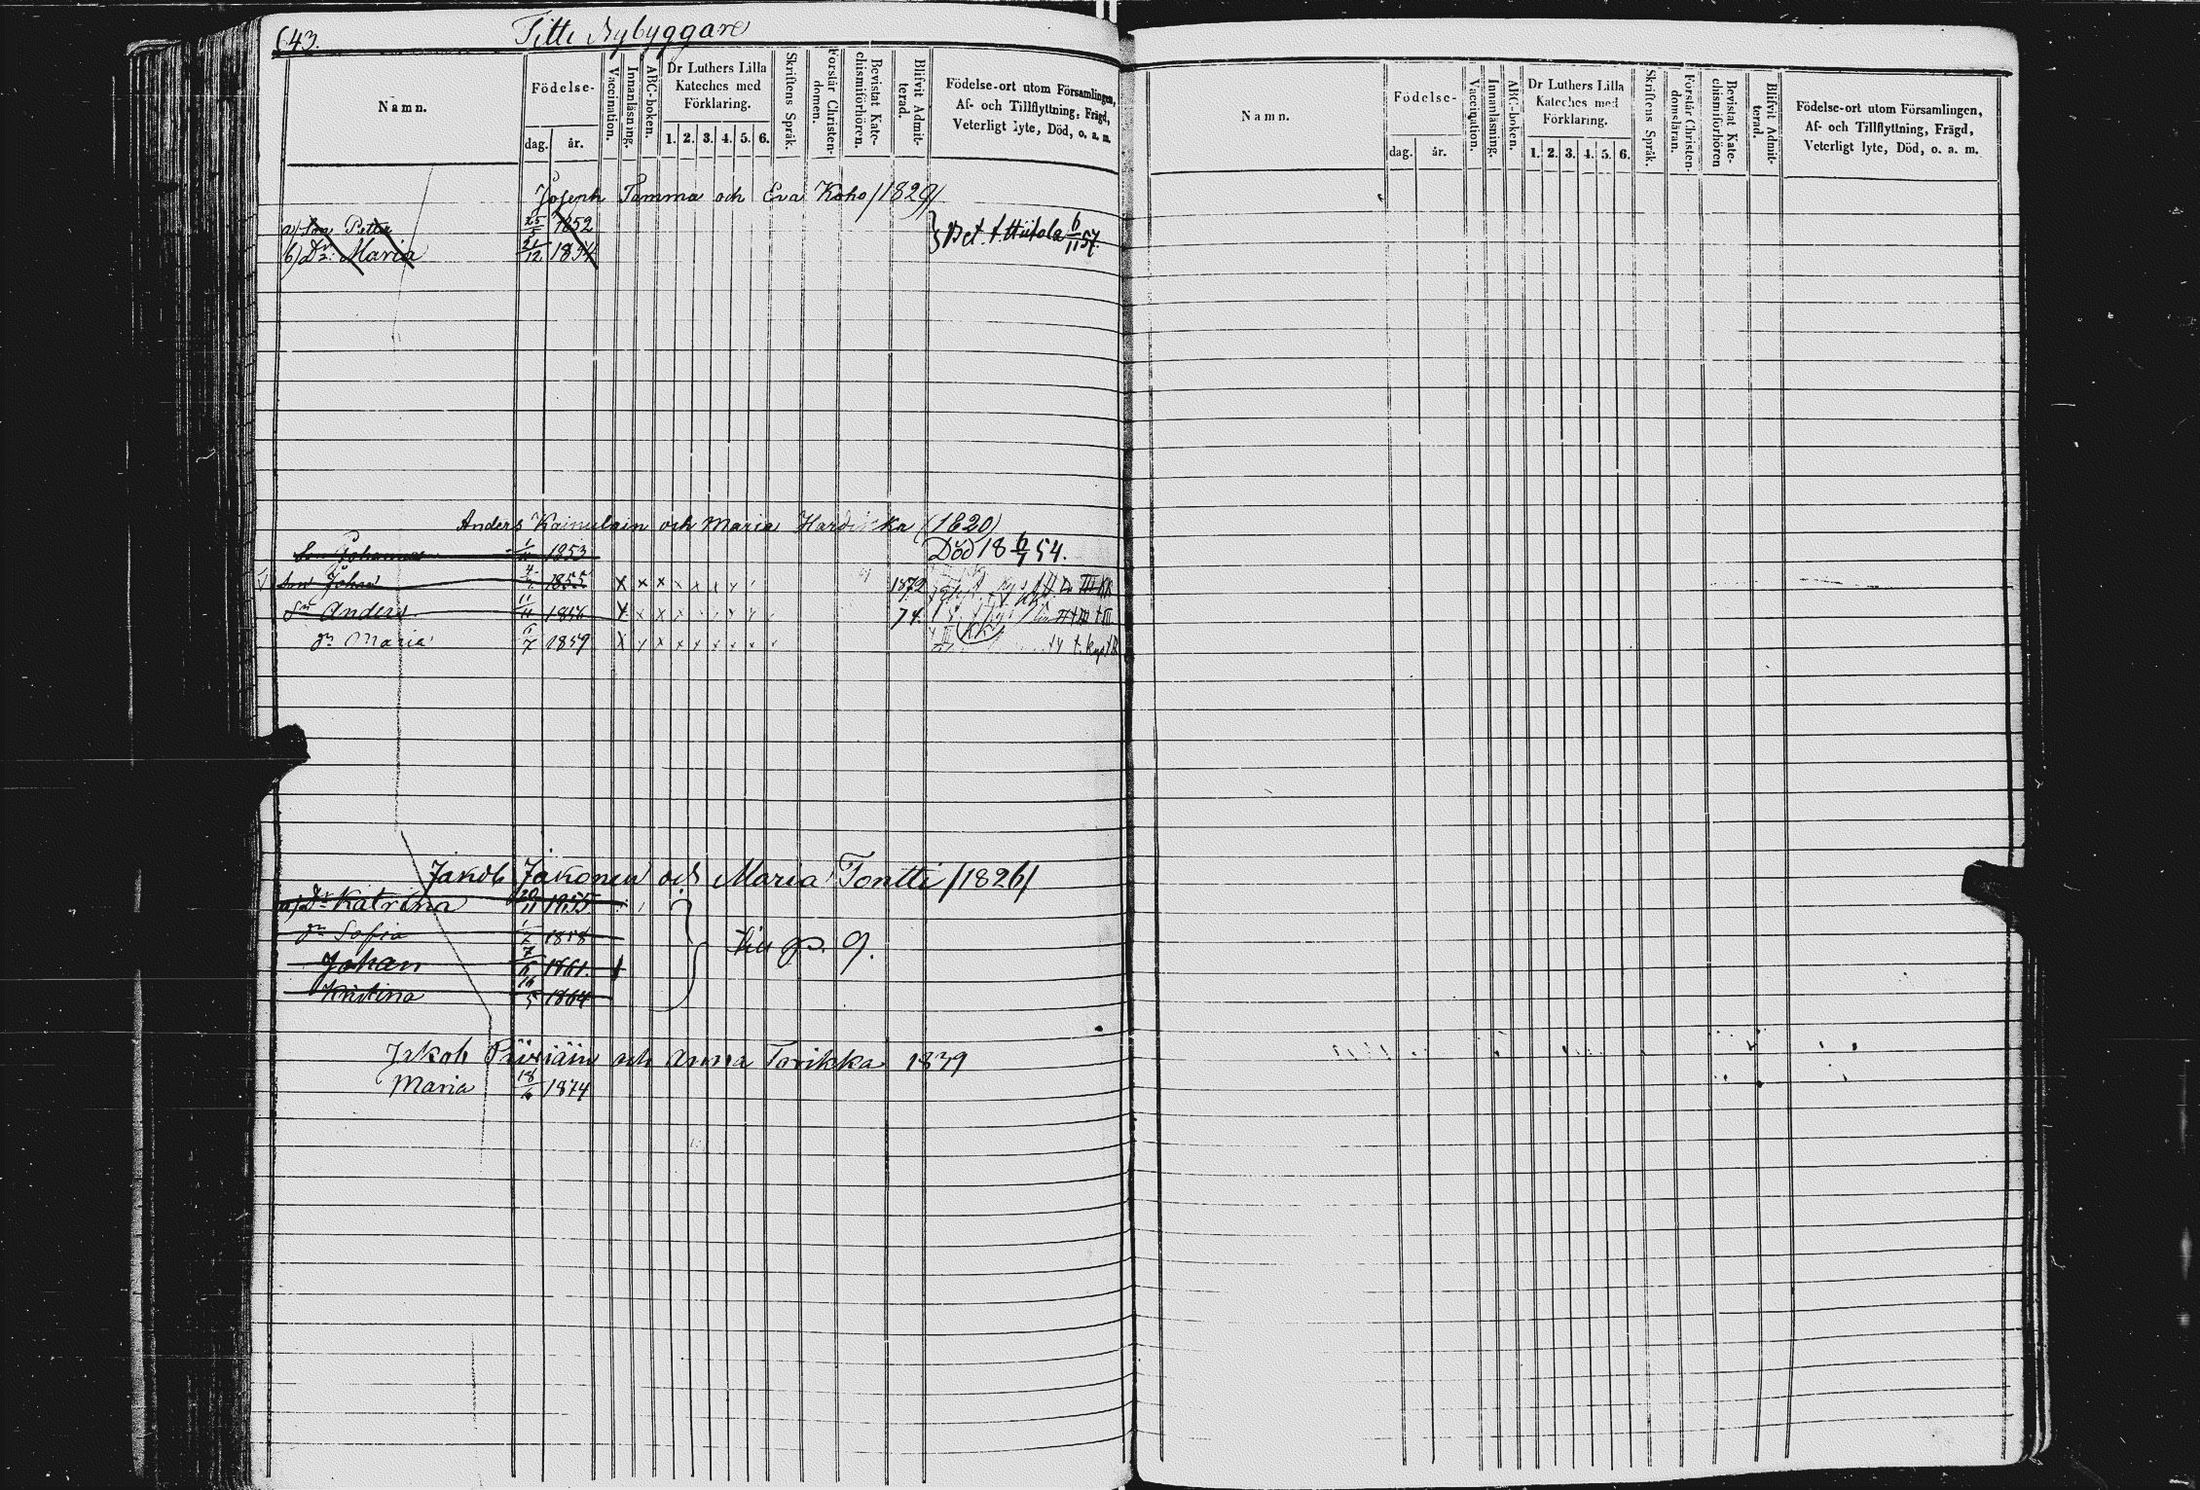 643.
Titti Nybyggare
Namn.
Födelse-
dag. år.
Vaccination.
Innanläsning.
ABC-boken.
Dr Luthers Lilla
Kateches med
Förklaring.
1. 2. 3. 4. 5. 6.
Skriftens Språk.
Förstår Christen-
domen.
Bevistat Kate-
chismiförhören.
Blifvit Admit-
terad.
Födelse-ort utom Församlingen,
Af- och Tillflyttning, Frägd,
Veterligt lyte, Död, o. a. m.
Joseph Tamma och Eva Koho /1829/
a) Son Petter 25/5 1852
b) Dr. Maria 21/12 1854
Bet. t. Hiitola 6/11 57.
Anders Kainulain och Maria (1820)
Son Johannes 1853 Död 18 6/7 54.
Son Johan 4 1855 x x x x x x x 1872
Sn Anders 11/11 1856 x x x x 74.
Dr Maria 7 1859 x x x x x x x x
Jakob Jakonen och Maria Tontti /1826/
a) Dr Katrina 20/11 1855
Dr Sofia 1858
Johan 7 1861
Kristina 16/5 1864
p. 9.
Jakob och Anna Torikka 1839
Maria 18/6 1874
Namn.
Födelse-
dag. år.
Vaccination.
Innanläsning.
ABC-boken.
Dr Luthers Lilla
Kateches med
Förklaring.
1. 2. 3. 4. 5. 6.
Skriftens Språk.
Förstår Christen-
domsläran.
Bevistat Kate-
chismiförhören
Blifvit Admit-
terad.
Födelse-ort utom Församlingen,
Af- och Tillflyttning, Frägd,
Veterligt lyte, Död, o. a. m.